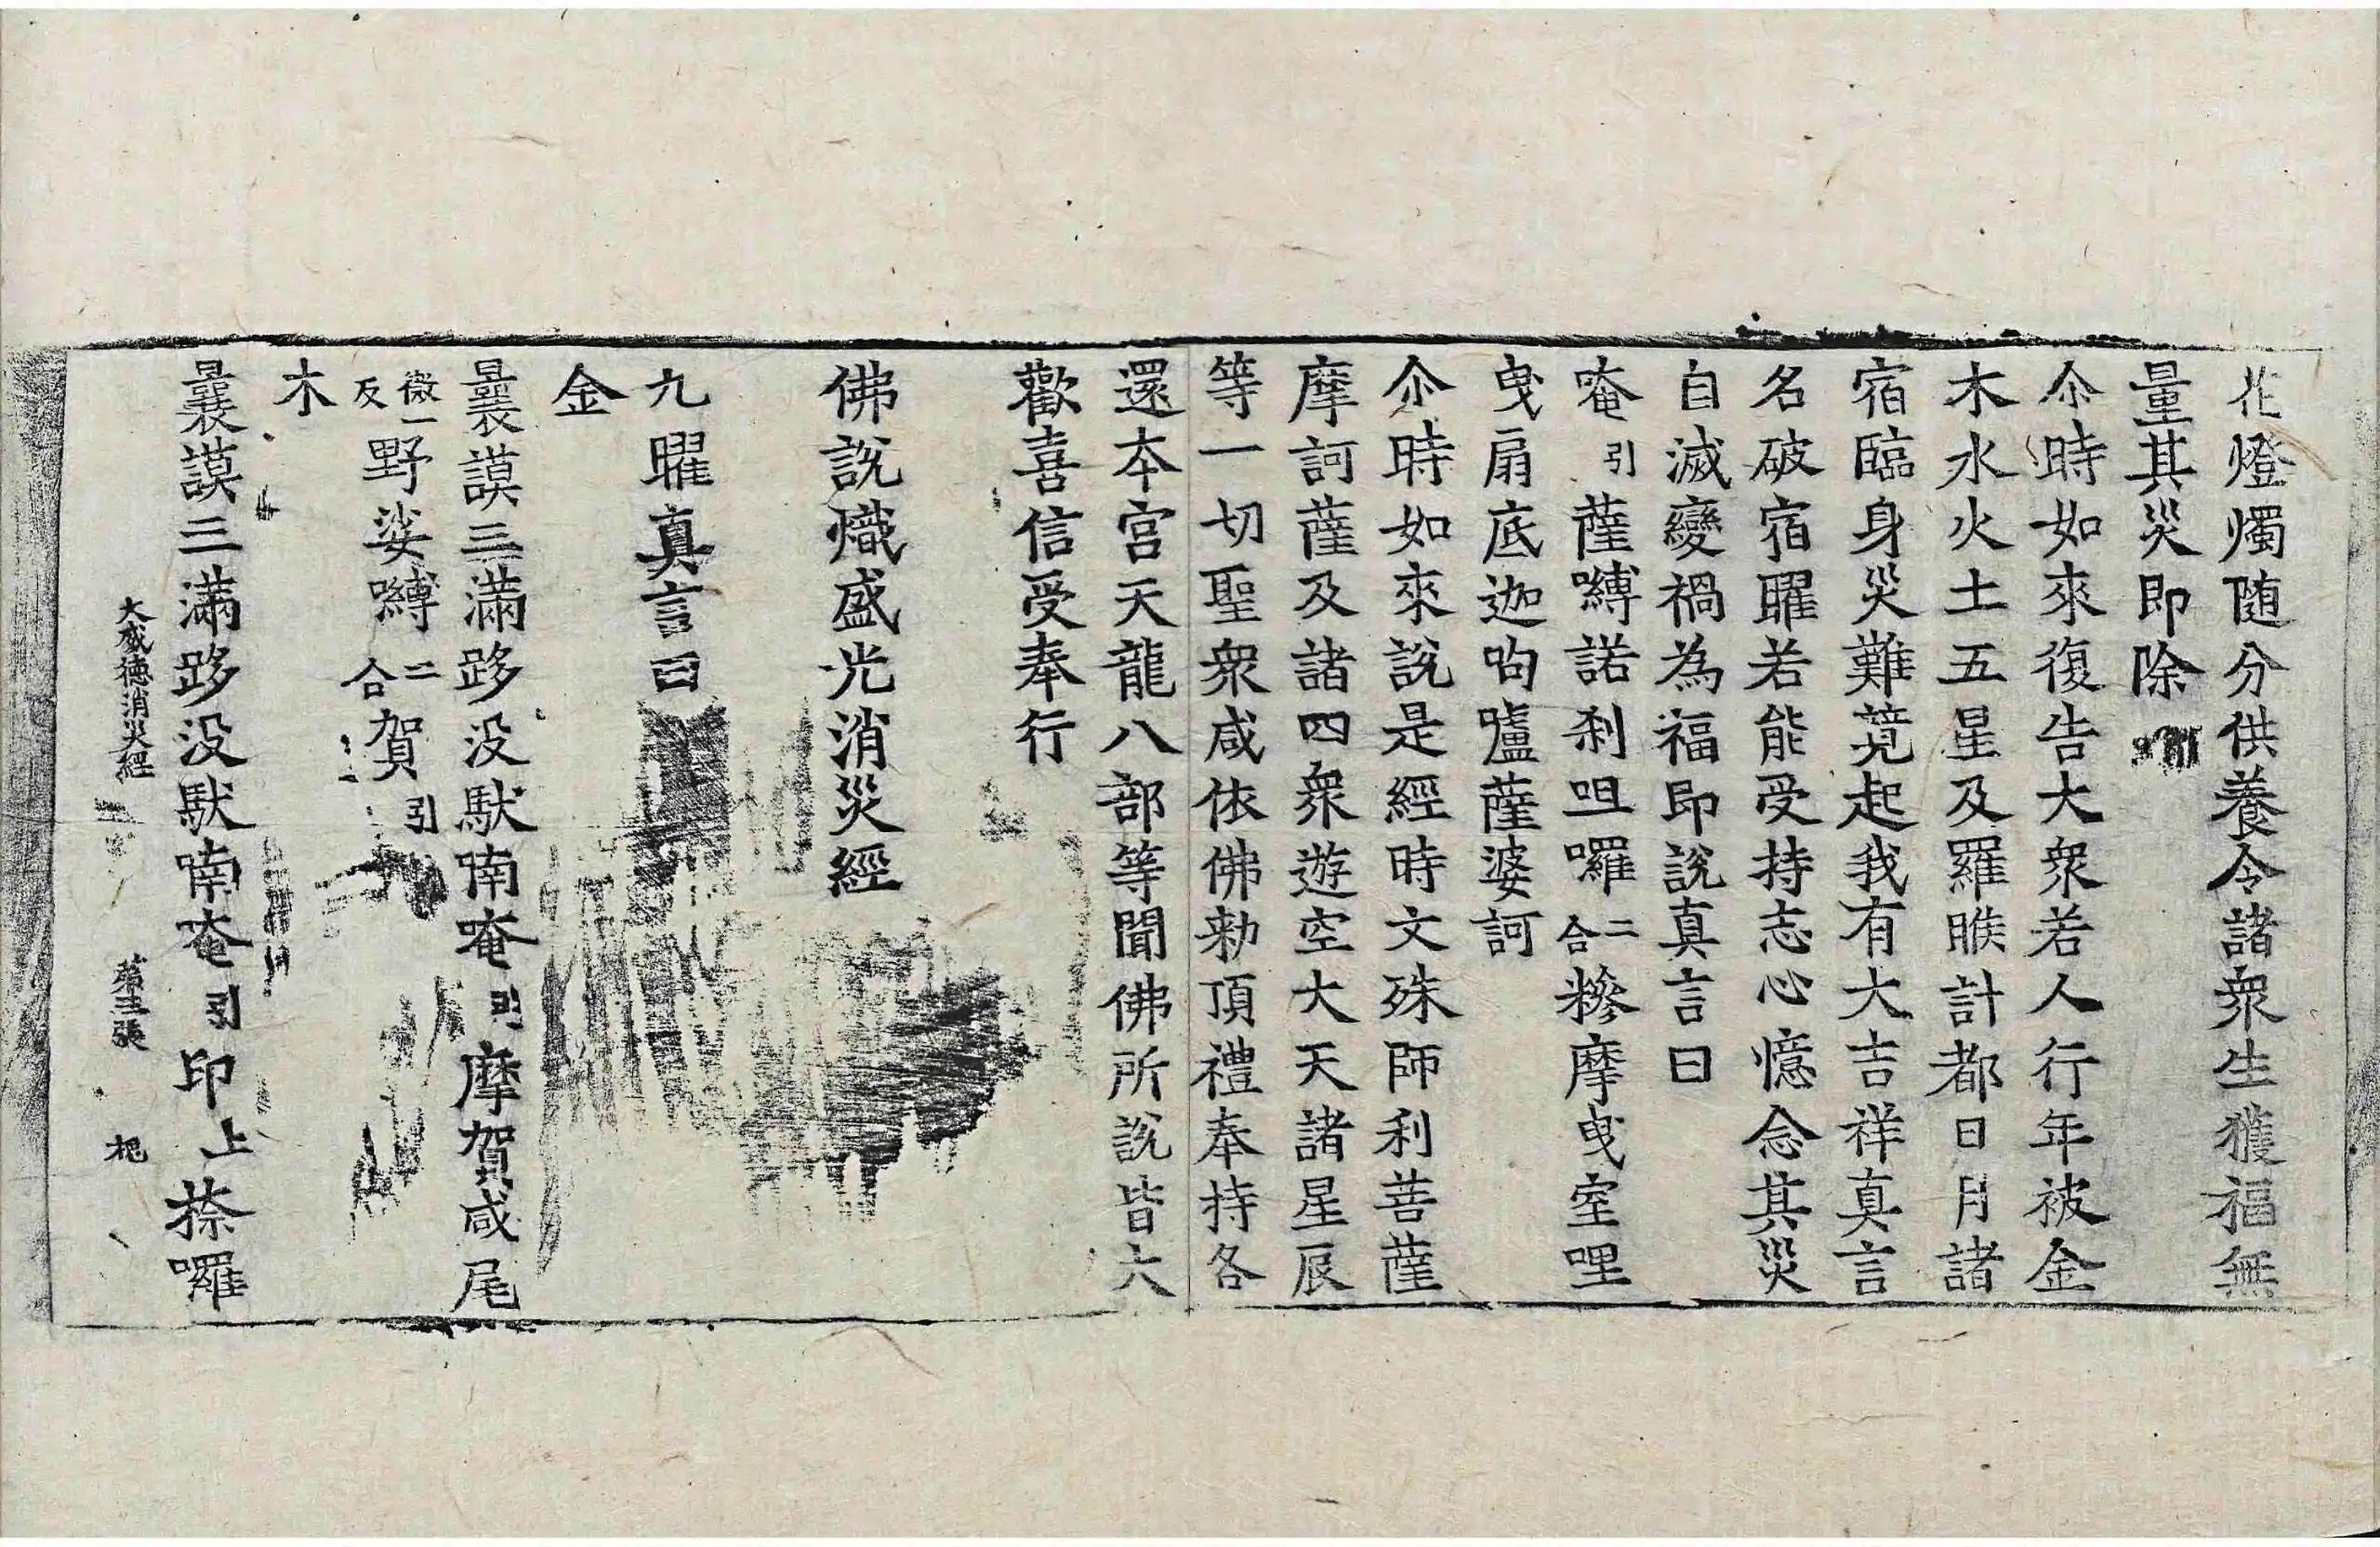 花燈燭随分供養令諸衆生獲福無
量其災即除
尒時如來復告大衆若人行年被金
木水火土五星及羅睺計都日月諸
宿臨身災難竸起我有大吉祥真言
名破宿曜若能受持志心憶念其災
自滅變禍為福即說真言曰
唵引薩嚩諾剎呾囉二合糝摩曳室哩
曳扇底迦呴嚧薩婆訶
尒時如來說是經時文殊師利菩薩
摩訶薩及諸四衆遊空大天諸星辰
等一切聖衆咸依佛勑頂禮奉持各
還本宮天龍八部等聞佛所說皆大
歡喜信受奉行
佛說熾盛光消災經
九曜真言曰
金
曩謨三滿跢没馱喃唵引摩賀咸尾
微一反野娑嚩二合賀引
木
曩謨三滿跢没馱喃唵引印上捺囉
大威德消災經 第三張